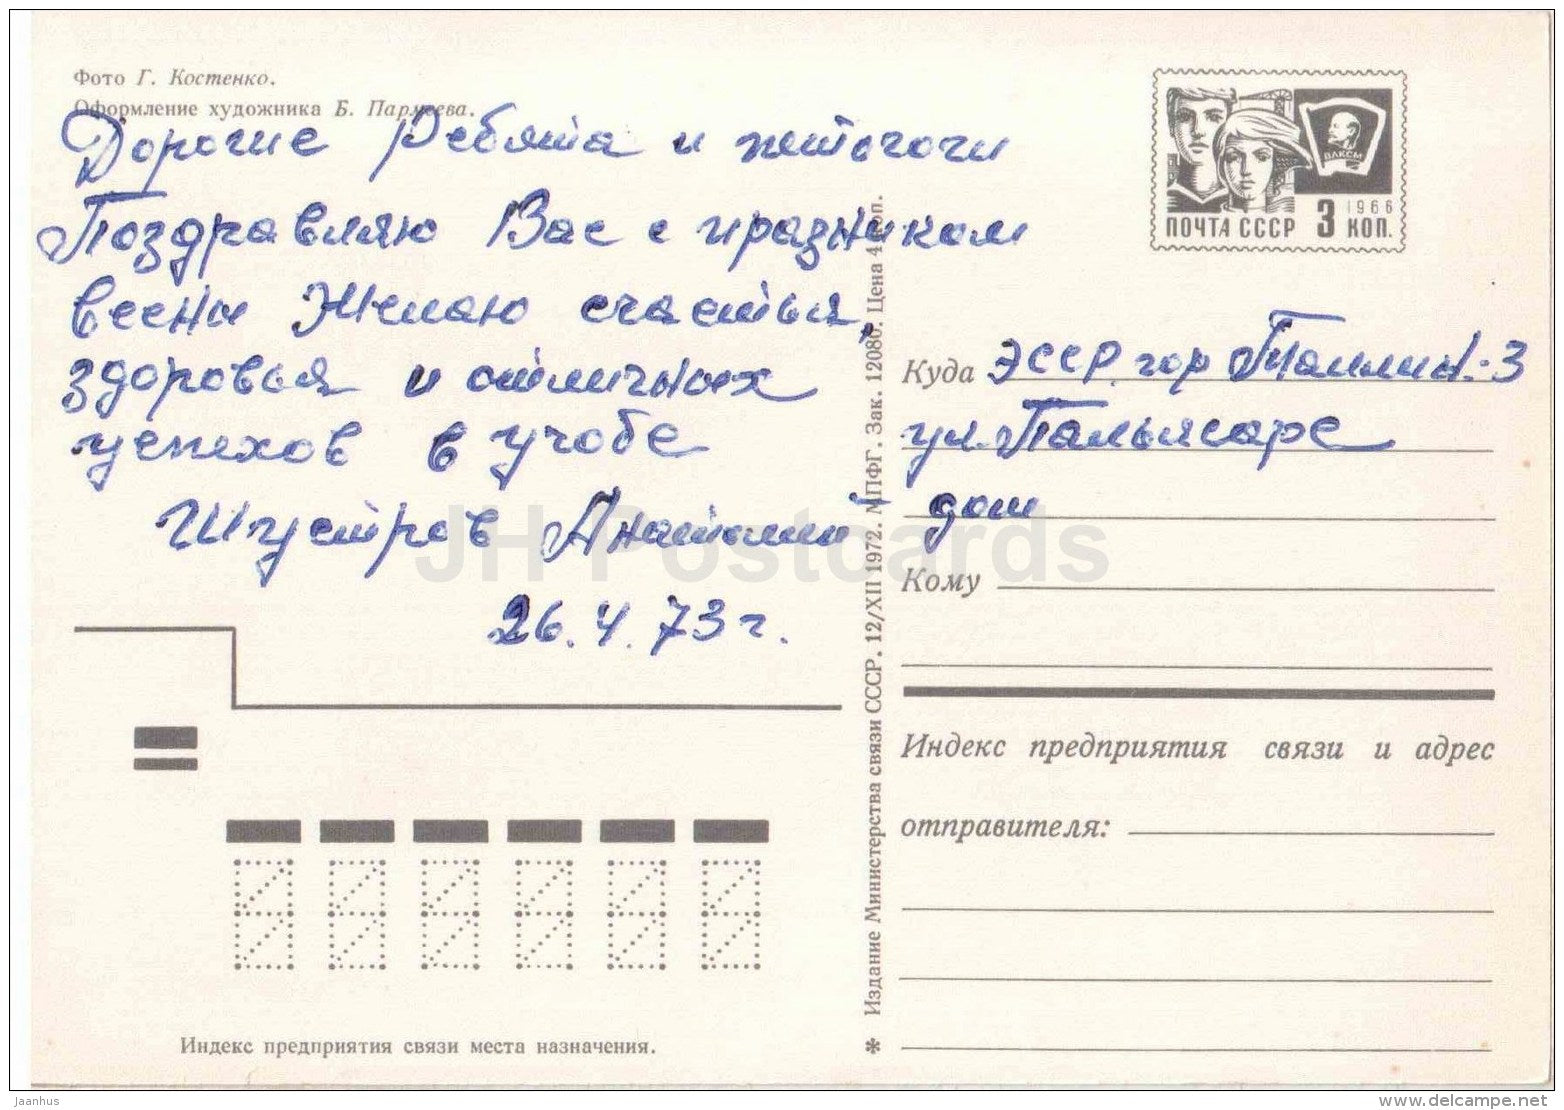 Фото Г. Костенко.
Оформление художника Б. Пармеева.
Дорогие Ребята и
Поздравляю Вас с праздником
весны Желаю счастья,
здоровья и отличных
успехов в учобе
Шустров Анатолий
26.4.73 г.
ПОЧТА СССР 3 КОП.
1966
ВЛКСМ
Куда ЭССР. гор Таллин-3
ул. Пальясааре
дом
Кому
Индекс предприятия связи и адрес
отправителя:
Индекс предприятия связи места назначения.
* Издание Министерства связи СССР. 12/XII 1972. МПФГ. Зак. 12080. Цена 4 коп.
JH Postcards
Jaanhus
www.delcampe.net